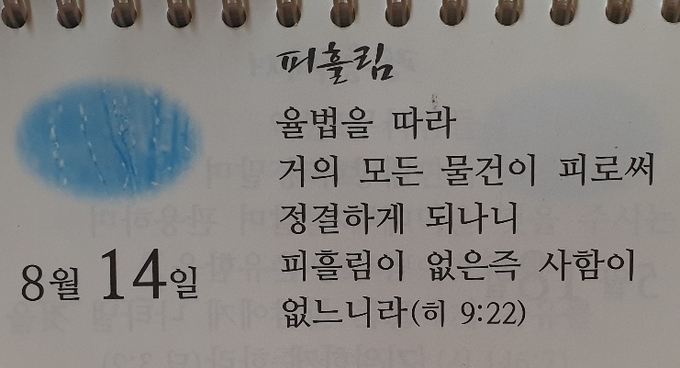 피흘림
율법을 따라
거의 모든 물건이 피로써
정결하게 되나니
피흘림이 없은즉 사함이
없느니라(히 9:22)
8월 14일